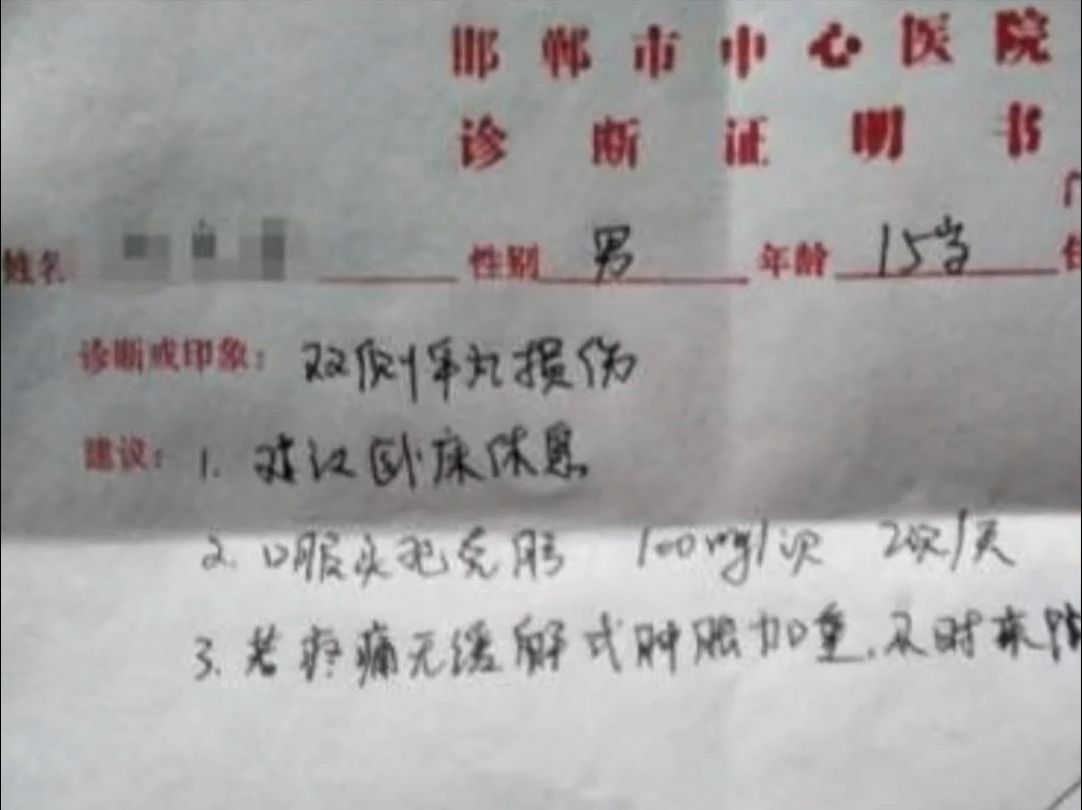 邯郸市中心医院
诊断证明书
姓名 性别 男 年龄 15岁
诊断或印象: 双侧睾丸损伤
建议: 1. 建议卧床休息
2. 口服头孢克肟 100mg/次 2次/天
3. 若疼痛无缓解或肿胀加重,及时来院